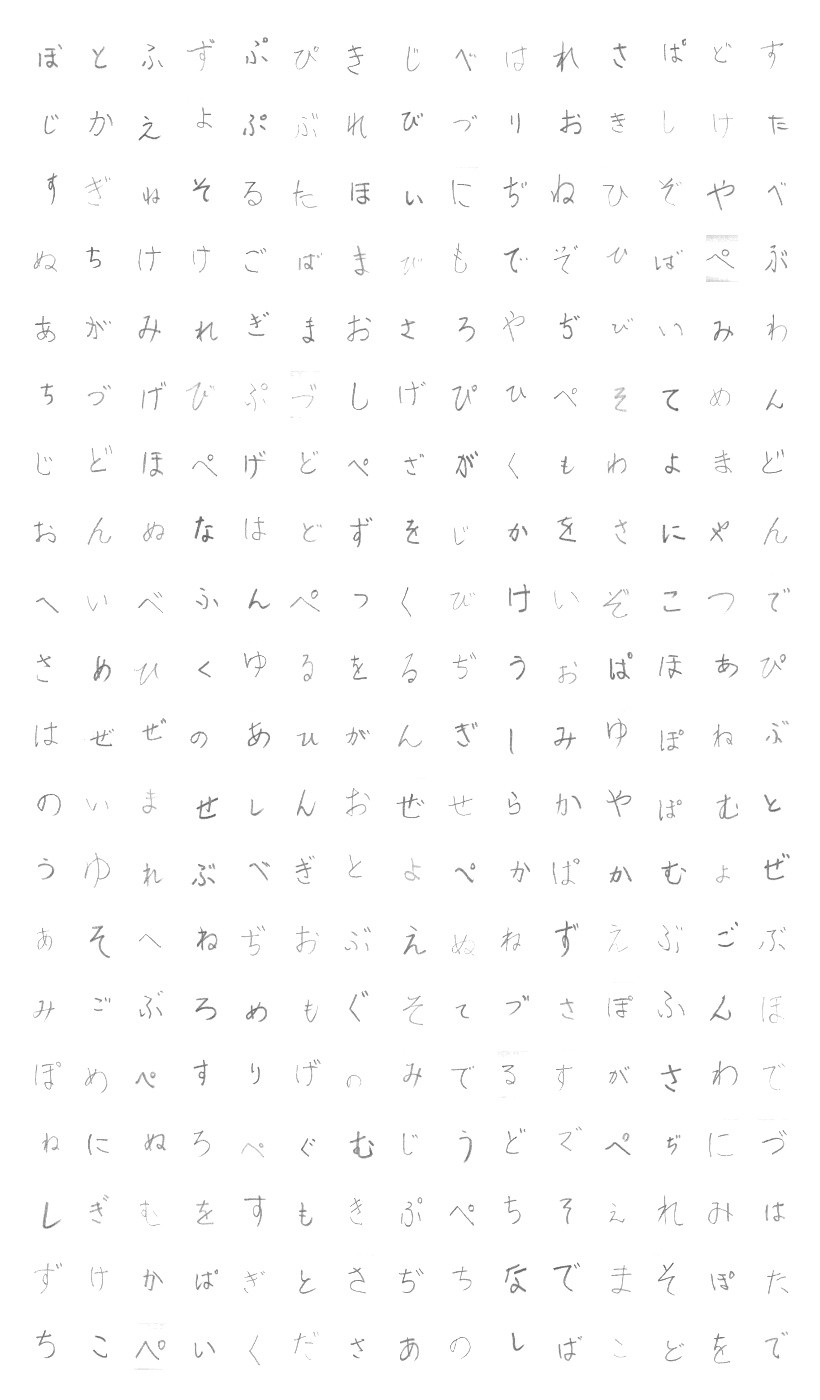 ぼとふずぷぴきじべはれさぱどす
じかえよぷぶれびづりおきしけた
すぎねそるたほいにぢねひぞやべ
ぬちけけごばまびもでぞひばぺぶ
あがみれぎまおさろやぢびいみわ
ちづげびぷづしげぴひぺそてめん
じどほぺげどぺざがくもわよまど
おんぬなはどずをじかをさにやん
へいべふんぺつくびけいぞこつで
さめひくゆるをるぢうおぱほあぴ
はぜぜのあひがんぎしみゆぽねぶ
のいませしんおぜせらかやぱむと
うゆれぶべぎとよぺかぱかむよぜ
あそへねぢおぶえぬねずえぶごぶ
みごぶろめもぐそてづさぽふんほ
ぽめぺすりげのみでるすがさわで
ねにぬろぺぐむじうどずぺぢにづ
しぎむをすもきぷぺちそえれみは
ずけかぱぎとさぢちなでまそぽた
ちこぺいくださあのしばこどをで